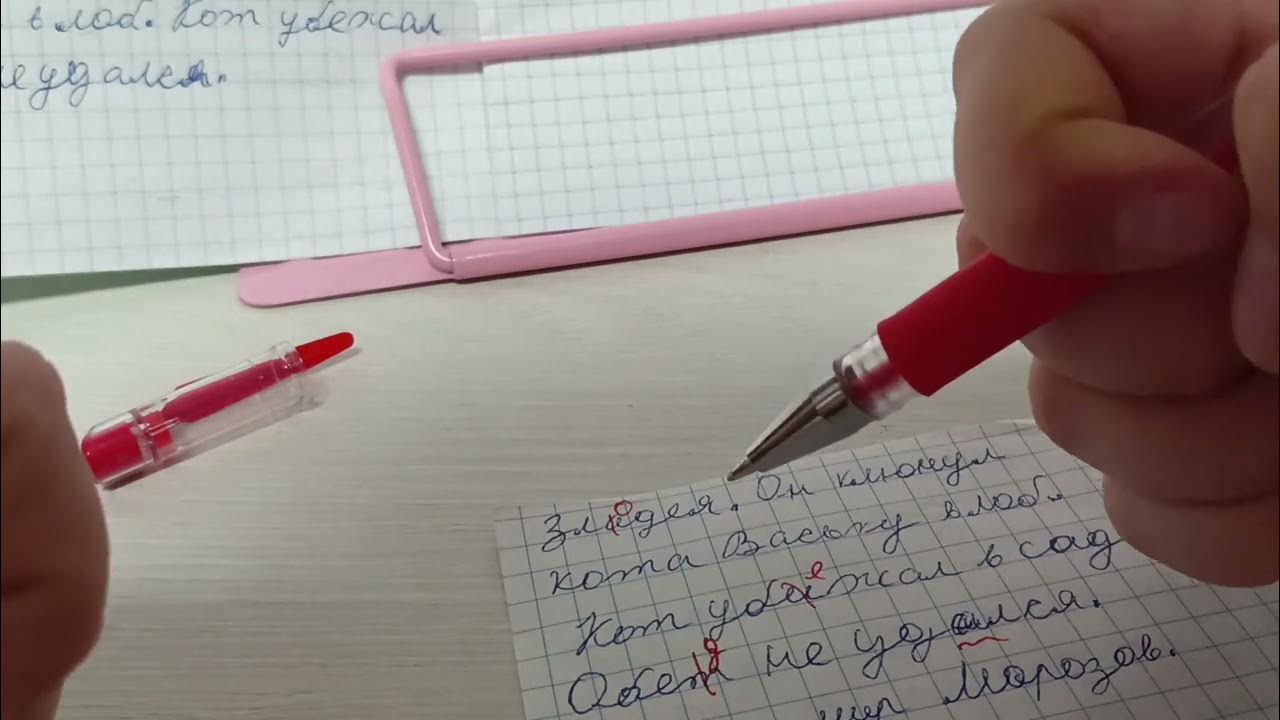 в лоб. Кот убежал
удался.
Злодея. Он клюнул
кота Ваську в лоб.
Кот убежал в сад
Обед не удался.
Морозов.